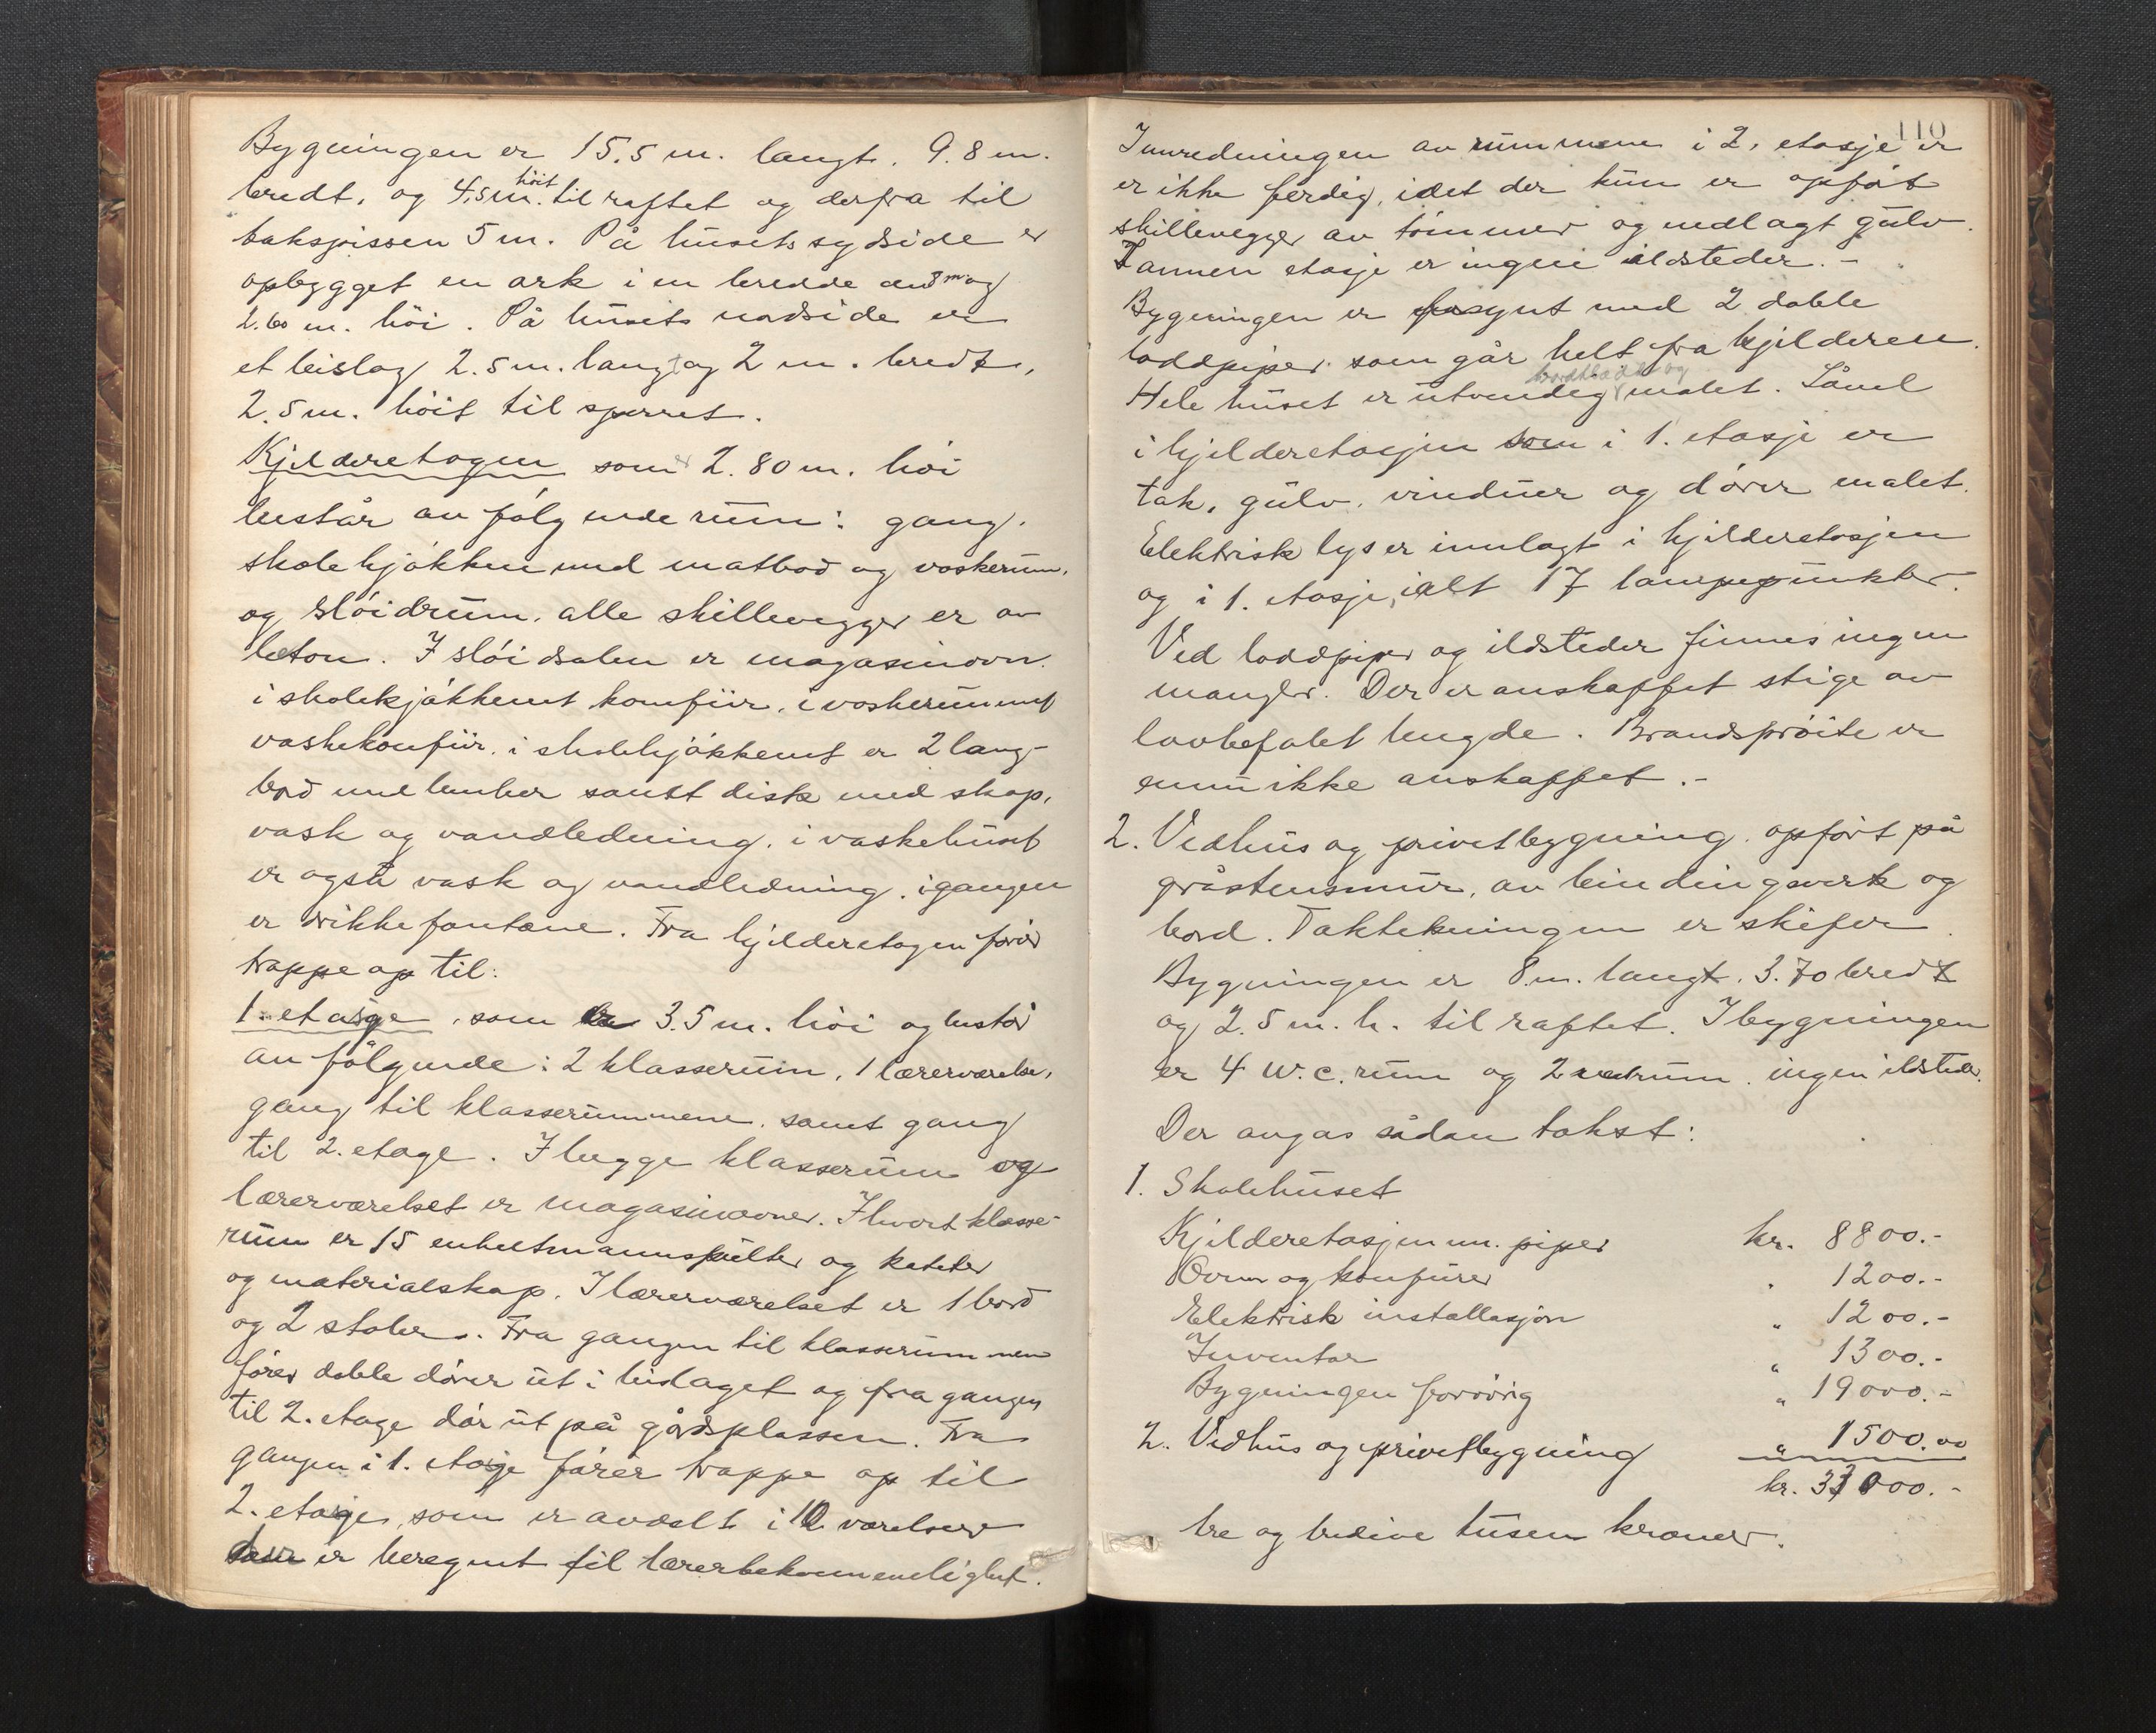 Bygningen er 15.5 m. langt, 9.8 m.
bredt, og 4.5 m. høit til raftet og derfra til
takspissen 5 m. På husets sydside er
opbygget en ark i en bredde av 8 m og
2.60 m. höi. På husets nordside er
et bislag 2.5 m. langt og 2 m. bredt,
2.5 m. höit til sperret.
Kjelderetagen som er 2.80 m. höi
består av fölgende rum: gang,
skolekjökken med matbod og vaskerum,
og slöidrum, alle skillevegger er av
beton. I slöidsalen er magasinovn.
i skolekjökkenet komfür, i vaskerummet
vaskekomfür, i skolekjökkenet er 2 lang-
bord med benker samt disk med skap,
vask og vandledning, i vaskehuset
er også vask og vandledning, i gangen
er drikkefontene. Fra kjelderetagen förer
trappe op til:
1. etasje, som er 3.5 m. höi og består
av fölgende: 2 klasserum, 1 lærerværelse,
gang til klasserummene, samt gang
til 2. etage. I begge klasserum og
lærerværelset er magasinovner. I hvert klasse-
rum er 15 enheetmannspulter og kateter
og materialskap. I lærerværelset er 1 bord
og 2 stoler. Fra gangen til klasserummene
förer doble dörer ut i bislaget og fra gangen
til 2. etage dör ut på gårdsplassen. Fra
gangen i 1. etasje förer trappe op til
2. etasje, som er avdelt i 10 værelser
som er beregnet til lærerbekvemmelighet.
110
Innredningen av rummene i 2. etasje er
er ikke ferdig, idet der kun er opfört
skillevegger av tömmer og nedlagt gulv.
I annen etasje er ingen ildsteder.-
Bygningen er forsynt med 2 doble
loddpiper som går helt fra kjelderen.
Hele huset er utvendig bordklædt og malet. Såvel
i kjelderetasjen som i 1. etasje er
tak, gulv, vinduer og dörer malet.
Elektrisk lys er innlagt i kjelderetasjen
og i 1. etasje, ialt 17 lampepunkter.
Ved loddpiper og ildsteder finnes ingen
mangler. Der er anskaffet stige av
lovbefalet lengde. Brandspröite er
ennu ikke anskaffet.-
2. Vedhus og privetbygning, opfört på
gråstensmur, av bindingsverk og
bord. Taktekningen er skifer.
Bygningen er 8 m. langt, 3.70 bredt
og 2.5 m. h. til raftet. I bygningen
er 4 w.c. rum og 2 vedrum, ingen ildsteder.
Der avgas sådan takst:
1. Skolehuset
Kjelderetasjen m. piper kr. 8800.-
Ovner og komfürer " 1200.-
Elektrisk installasjon " 1200.-
Inventar " 1300.-
Bygningen forövrig " 19000.-
2. Vedhus og privetbygning " 1500.00
kr. 33000.-
tre og tredive tusen kroner.